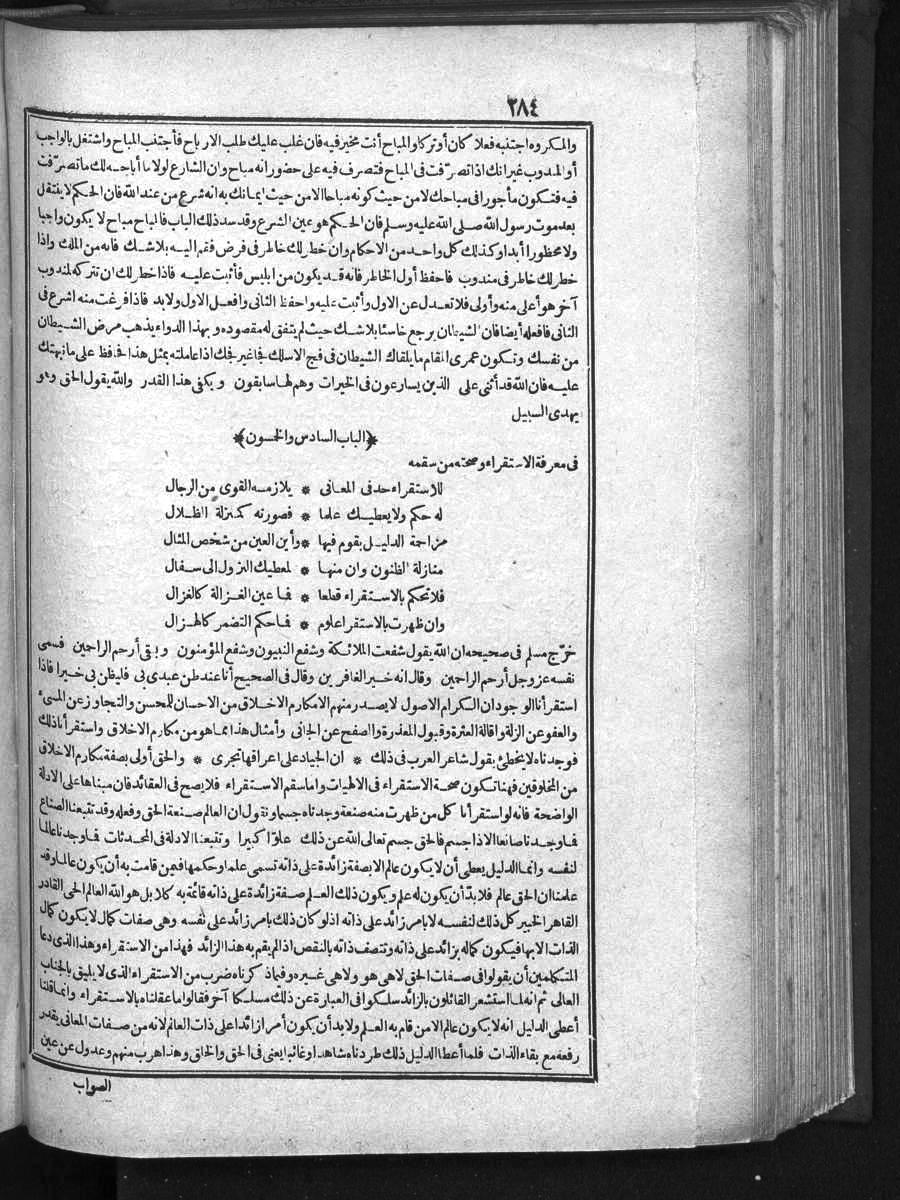 ٢٨٤
والمكروه اجتنبه فعلا كان أو تركا والمباح أنت مخير فيه فان غلب عليك طلب الارباح فاجتنب المباح واشتغل بالواجب
أو المندوب غير انك اذا تصرّفت فى المباح فتصرف فيه على حضور انه مباح وان الشارع لولا ما أباحه لك ما تصرّفت
فيه فتكون مأجورا فى مباحك لا من حيث كونه مباحا الا من حيث ايمانك به انه شرع من عند الله فان الحكم لا ينتقل
بعد موت رسول الله صلى الله عليه وسلم فان الحكم هو عين الشرع وقد سد ذلك الباب فالمباح مباح لا يكون واجبا
ولا محظورا أبدا وكذلك كل واحد من الاحكام وان خطر لك خاطر فى فرض فقم اليه بلا شك فانه من الملك واذا
خطر لك خاطر فى مندوب فاحفظ أول الخاطر فانه قد يكون من ابليس فأثبت عليه فاذا خطر لك ان تتركه لمندوب
آخر هو أعلى منه وأولى فلا تعدل عن الاول وأثبت عليه واحفظ الثانى وافعل الاول ولا بد فاذا فرغت منه اشرع فى
الثانى فافعله أيضا فان الشيطان يرجع خاسئا بلا شك حيث لم يتفق له مقصوده وبهذا الدواء يذهب مرض الشيطان
من نفسك وتكون عمرى المقام ما يلقاك الشيطان فى فج الا سلك فجا غير فجك اذا عاملته بمثل هذا فحافظ على ما نبهتك
عليه فان الله قد أثنى على الذين يسارعون فى الخيرات وهم لها سابقون ويكفى هذا القدر والله يقول الحق وهو
يهدى السبيل
﴿الباب السادس والخسون﴾
فى معرفة الاستقراء وصحته من سقمه
للاستقراء حد فى المعانى * يلازمه القوى من الرجال
له حكم ولا يعطيك علما * فصورته كمنزلة الظلال
مزاحمة الدليل يقوم فيها * وأين العين من شخص المثال
منازلة الظنون وان منها * لمعطيك النزول الى سفال
فلا تحكم بالاستقراء قطعا * فما عين الغزالة كالغزال
وان ظهرت بالاستقرا علوم * فما حكم التضمر كالهزال
خرّج مسلم فى صحيحه ان الله يقول شفعت الملائكة وشفع النبيون وشفع المؤمنون وبقى أرحم الراحمين فسمى
نفسه عز وجل أرحم الراحمين وقال انه خير الغافرين وقال فى الصحيح أنا عند ظن عبدى بى فليظن بى خيرا فاذا
استقرأنا الوجود ان الكرام الاصول لا يصدر منهم الا مكارم الاخلاق من الاحسان للمحسن والتجاوز عن المسىء
والعفو عن الزلة واقالة العثرة وقبول المعذرة والصفح عن الجانى وأمثال هذا مما هو من مكارم الاخلاق واستقرأنا ذلك
فوجدناه لا يخطئ يقول شاعر العرب فى ذلك * ان الجياد على اعراقها تجرى * والحق أولى بصفة مكارم الاخلاق
من المخلوقين فهنا تكون صحة الاستقراء فى الالهيات واما سقم الاستقراء فلا يصح فى العقائد فان مبناها على الادلة
الواضحة فانه لو استقرأنا كل من ظهرت منه صنعة وجدناه جسما ونقول ان العالم صنعة الحق وفعله وقد تتبعنا الصناع
فما وجدنا صانعا الا ذا جسم فالحق جسم تعالى الله عن ذلك علوّا كبيرا وتتبعنا الادلة فى المحدثات فما وجدنا عالما
لنفسه وانما الدليل يعطى أن لا يكون عالم الا بصفة زائدة على ذاته تسمى علما وحكمها فيمن قامت به أن يكون عالما وقد
علمنا ان الحق عالم فلا بدّ أن يكون له علم ويكون ذلك العلم صفة زائدة على ذاته قائمة به كلا بل هو الله العالم الحى القادر
القاهر الخبير كل ذلك لنفسه لا بامر زائد على ذاته اذ لو كان ذلك بامر زائد على نفسه وهى صفات كمال لا يكون كمال
الذات الا بها فيكون كماله بزائد على ذاته وتتصف ذاته بالنقص اذا لم يقم به هذا الزائد فهذا من الاستقراء وهذا الذى دعا
المتكلمين أن يقولوا فى صفات الحق لا هى هو ولا هى غيره وفيما ذكرناه ضرب من الاستقراء الذى لا يليق بالجناب
العالى ثم انه لما استشعر القائلون بالزائد سلكوا فى العبارة عن ذلك مسلكا آخر فقالوا ما عقلناه بالاستقراء وانما قلنا
أعطى الدليل انه لا يكون عالم الا من قام به العلم ولا بد أن يكون أمرا زائدا على ذات العالم لانه من صفات المعانى يقدر
رفعه مع بقاء الذات فلما أعطانا الدليل ذلك طردناه شاهدا وغائبا يعنى فى الحق والخلق وهذا هرب منهم وعدول عن عين
الصواب